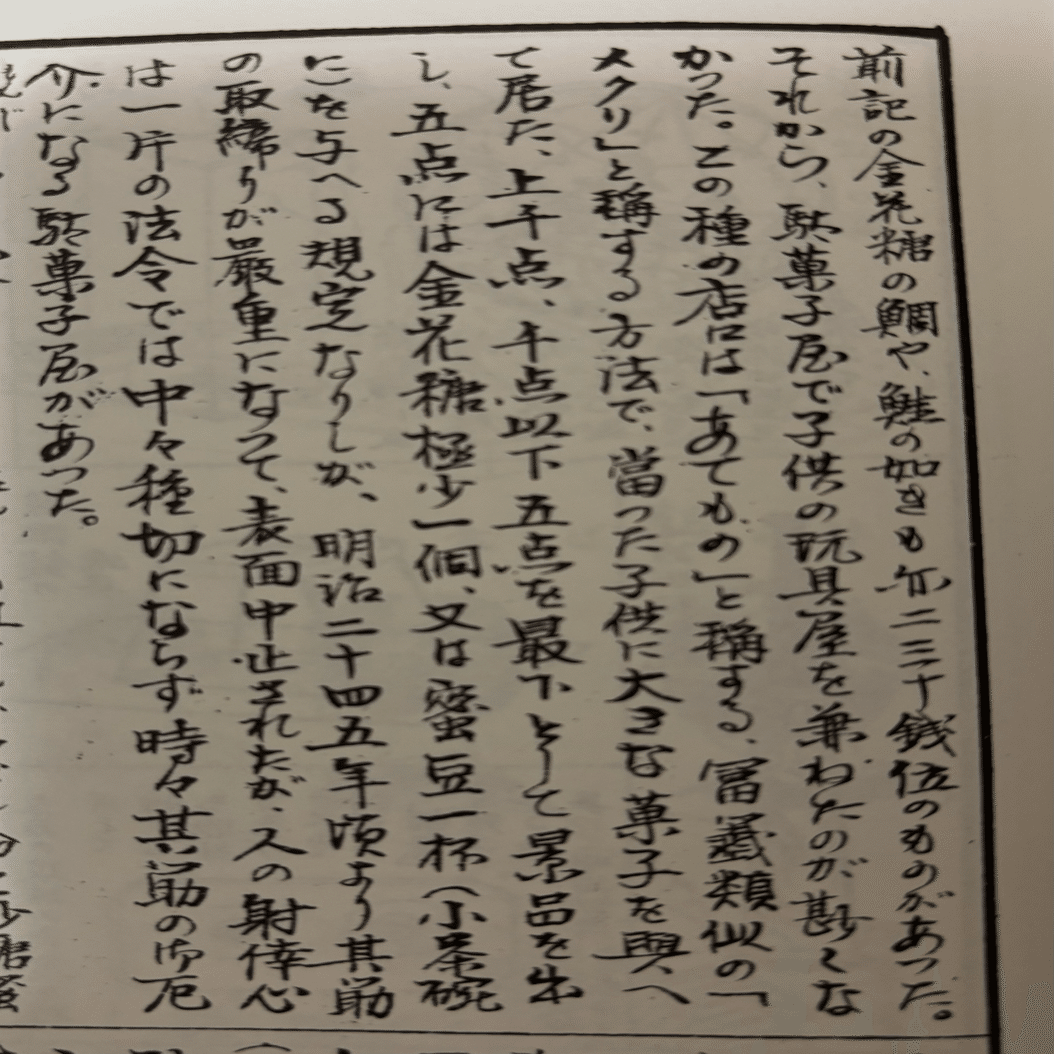 前記の金花糖の鯛や、鮭の如きも亦二三十銭位のものがあつた。
それから、駄菓子屋で子供の玩具屋を兼ねたのが尠くな
かつた。この種の店には「あてもの」と稱する、富籤類似の「
メクリ」と稱する方法で、當つた子供に大きな菓子を與へ
て居た、上千点、千点以下五点を最下として景品を出
し、五点には金花糖極少一個、又は蜜豆一杯(小茶碗
に)を与へる規定なりしが、明治二十四五年頃より其筋
の取締りが厳重になつて、表面中止されたが、人の射倖心
は一片の法令では中々種切にならず時々其筋の御厄
介になる駄菓子屋があつた。